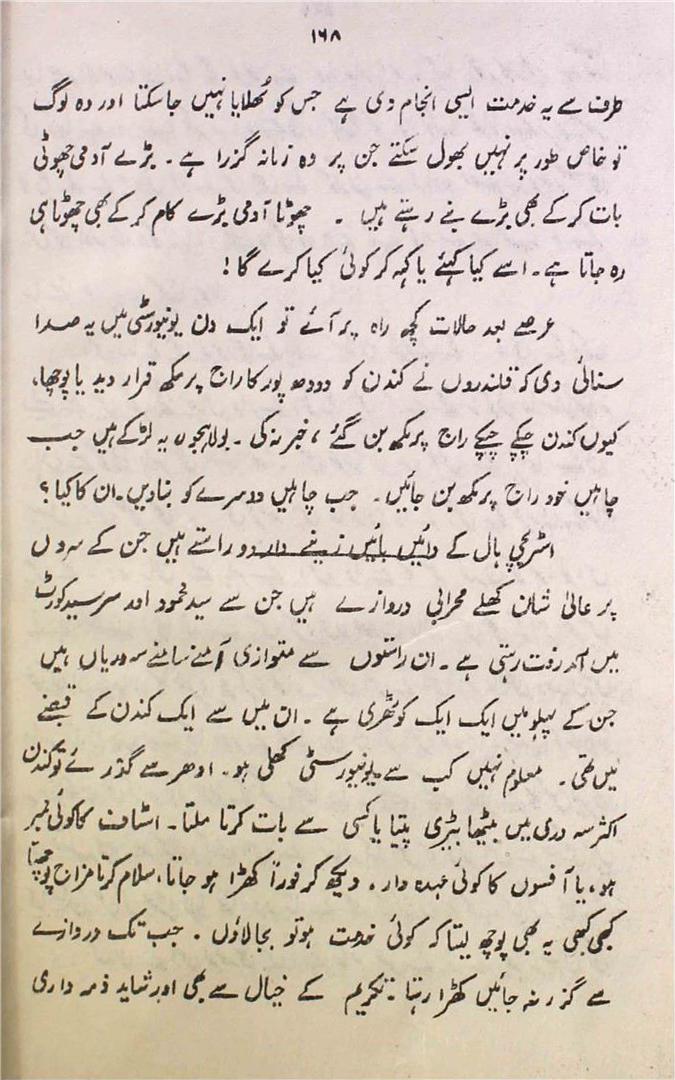 ۱۶۸
طرف سے یہ خدمت ایسی انجام دی ہے جس کو بُھلایا نہیں جاسکتا اور وہ لوگ
تو خاص طور پر نہیں بھول سکتے جن پر وہ زمانہ گزرا ہے۔ بڑے آدمی چھوٹی
بات کر کے بھی بڑے بنے رہتے ہیں ۔ چھوٹا آدمی بڑے کام کر کے بھی چھوٹا ہی
رہ جاتا ہے۔ اسے کیا کہئے یا کہہ کر کوئی کیا کرے گا!
عرصے بعد حالات کچھ راہ پر آئے تو ایک دن یونیورسٹی میں یہ صدا
سنائی دی کہ قلندروں نے کندن کو دودھ پور کا راج پرمکھ قرار دیدیا پوچھا،
کیوں کندن چپکے چپکے راج پرمکھ بن گئے ، خبر نہ کی ۔ بولا ہجور یہ لڑکے ہیں جب
چاہیں خود راج پرمکھ بن جائیں۔ جب چاہیں دوسرے کو بنادیں۔ ان کا کیا ؟
اسٹریچی ہال کے دائیں بائیں زینے دار دو راستے ہیں جن کے سروں
پر عالی شان کھلے محرابی دروازے ہیں جن سے سید محمود اور سرسید کورٹ
میں آمد رفت رہتی ہے ۔ ان راستوں سے متوازی آمنے سامنے سہ دریاں ہیں
جن کے پہلو میں ایک ایک کوٹھری ہے ۔ ان میں سے ایک کندن کے قبضے
میں تھی۔ معلوم نہیں کب سے یونیورسٹی کھلی ہو۔ ادھر سے گذرئے تو کندن
اکثر سہ دری میں بیٹھا بیڑی پیتا یا کسی سے بات کرتا ملتا۔ اسٹاف کا کوئی ممبر
ہو، یا آفسوں کا کوئی عہدہ دار۔ دیکھ کر فوراً کھڑا ہو جاتا، سلام کرتا مزاج پوچھتا
کبھی کبھی یہ بھی پوچھ لیتا کہ کوئی خدمت ہو تو بجالاؤں ۔ جب تک دروازے
سے گزر نہ جائیں کھڑا رہتا ۔ تکریم کے خیال سے بھی اور شاید ذمہ داری